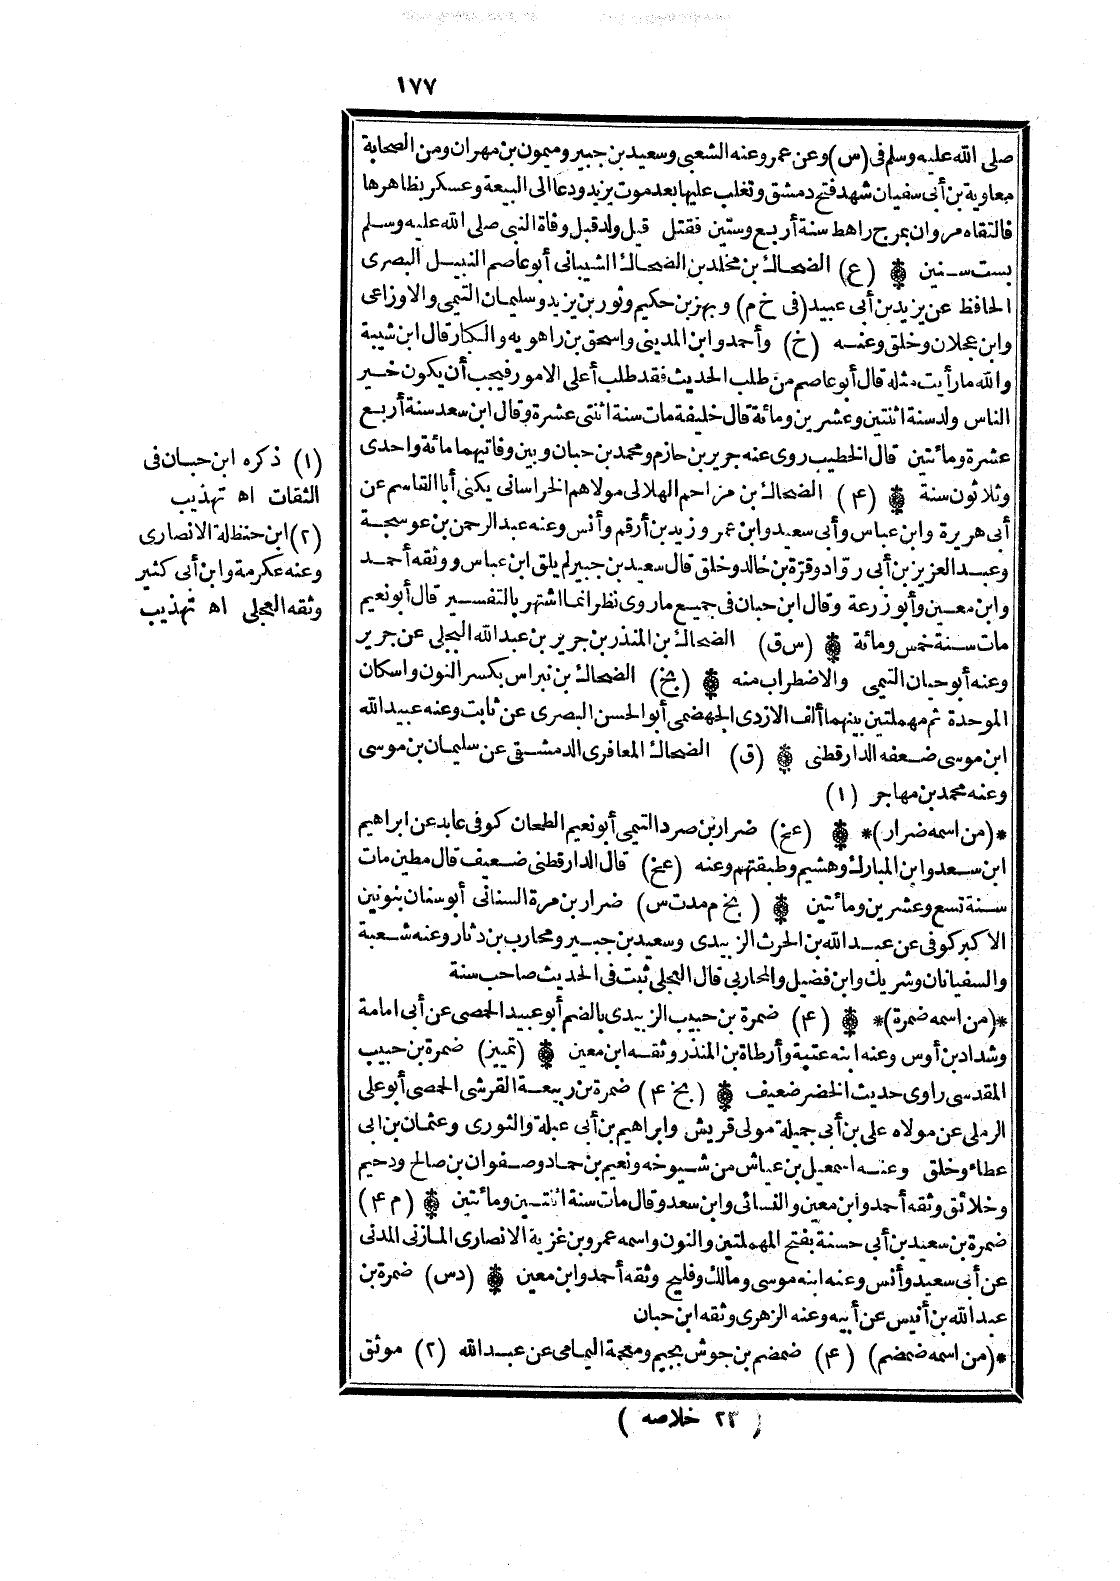 ١٧٧
صلى الله عليه وسلم فى (س) وعن عمر وعنه الشعبى وسعيد بن جبير وميمون بن مهران ومن الصحابة
معاوية بن أبى سفيان شهد فتح دمشق وتغلب عليها بعد موت يزيد ودعا الى البيعة وعسكر بظاهرها
فالتقاه مروان بمرج راهط سنة أربع وستين فقتل قيل ولد قبل وفاة النبى صلى الله عليه وسلم
بست سنين ۞ (ع) الضحاك بن مخلد بن الضحاك الشيبانى أبو عاصم النبيل البصرى
الحافظ عن يزيد بن أبى عبيد (فى خ م) وبهز بن حكيم وثور بن يزيد وسليمان التيمى والاوزاعى
وابن عجلان وخلق وعنه (خ) وأحمد وابن المدينى واسحق بن راهويه والكبار قال ابن شيبة
والله ما رأيت مثله قال أبو عاصم من طلب الحديث فقد طلب أعلى الامور فيجب أن يكون خير
الناس ولد سنة اثنتين وعشرين ومائة قال خليفة مات سنة اثنتى عشرة وقال ابن سعد سنة أربع
عشرة ومائتين قال الخطيب روى عنه جرير بن حازم ومحمد بن حبان وبين وفاتيهما مائة واحدى
وثلاثون سنة ۞ (٤) الضحاك بن مزاحم الهلالى مولاهم الخراسانى يكنى أبا القاسم عن
أبى هريرة وابن عباس وأبى سعيد وابن عمر وزيد بن أرقم وأنس وعنه عبد الرحمن بن عوسجة
وعبد العزيز بن أبى رواد وقرة بن خالد وخلق قال سعيد بن جبير لم يلق ابن عباس ووثقه أحمد
وابن معين وأبو زرعة وقال ابن حبان فى جميع ما روى نظر انما اشتهر بالتفسير قال أبو نعيم
مات سنة خمس ومائة ۞ (س ق) الضحاك بن المنذر بن جرير بن عبد الله البجلى عن جرير
وعنه أبو حيان التيمى والاضطراب منه ۞ (بخ) الضحاك بن نبراس بكسر النون واسكان
الموحدة ثم مهملتين بينهما ألف الازدى الجهضمى أبو الحسن البصرى عن ثابت وعنه عبيد الله
ابن موسى ضعفه الدارقطنى ۞ (ق) الضحاك المعافرى الدمشقى عن سليمان بن موسى
وعنه محمد بن مهاجر (١)
*(من اسمه ضرار)* ۞ (عخ) ضرار بن صرد التيمى أبو نعيم الطحان كوفى عابد عن ابراهيم
ابن سعد وابن المبارك وهشيم وطبقتهم وعنه (عخ) قال الدارقطنى ضعيف قال مطين مات
سنة تسع وعشرين ومائتين ۞ (بخ م مد ت س) ضرار بن مرة السنانى أبو سنان بنونين
الاكبر كوفى عن عبد الله بن الحرث الزبيدى وسعيد بن جبير ومحارب بن دثار وعنه شعبة
والسفيانان وشريك وابن فضيل والمحاربى قال العجلى ثبت فى الحديث صاحب سنة
*(من اسمه ضمرة)* ۞ (٤) ضمرة بن حبيب الزبيدى بالضم أبو عبيد الحمصى عن أبى امامة
وشداد بن أوس وعنه ابنه عتبة وأرطاة بن المنذر وثقه ابن معين ۞ (تمييز) ضمرة بن حبيب
المقدسى راوى حديث الخضر ضعيف ۞ (بخ ٤) ضمرة بن ربيعة القرشى الحمصى أبو على
الرملى عن مولاه على بن أبى جميلة مولى قريش وابراهيم بن أبى عبلة والثورى وعثمان بن ابى
عطاء وخلق وعنه اسمعيل بن عياش من شيوخه ونعيم بن حماد وصفوان بن صالح ودحيم
وخلائق وثقه أحمد وابن معين والنسائى وابن سعد وقال مات سنة اثنتين ومائتين ۞ (م ٤)
ضمرة بن سعيد بن أبى حسنة بفتح المهملتين والنون واسمه عمرو بن غزية الانصارى المازنى المدنى
عن أبى سعيد وأنس وعنه ابنه موسى ومالك وفليح وثقه أحمد وابن معين ۞ (د س) ضمرة بن
عبد الله بن أنيس عن أبيه وعنه الزهرى وثقه ابن حبان
*(من اسمه ضمضم) (٤) ضمضم بن جوش بجيم ومعجمة اليمامى عن عبد الله (٢) موثق
(١) ذكره ابن حبان فى
الثقات اه تهذيب
(٢) ابن حنظلة الانصارى
وعنه عكرمة وابن أبى كثير
وثقه العجلى اه تهذيب
(٢٣ خلاصه)